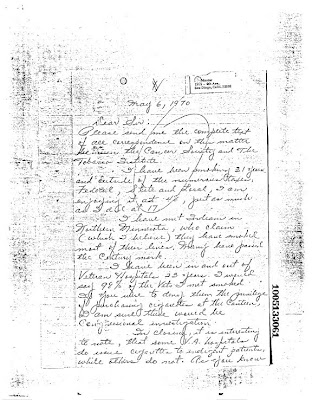 May 6, 1970
Dear Sir:
Please send me the complete text
of all correspondence on the matter
between the Cancer Society and The
Tobacco Institute.
I have been smoking 21 years
and outside of the numerous taxes,
Federal, State and Local, I am
enjoying it at 42, just as much
as I did at 17.
I have met Indians in
Northern Minnesota, who claim
(which I believe) they have smoked
most of their lives, many have past
the Century mark.
I have been in and out of
Veteran Hospitals 22 years. I would
say 98% of the Vets I met smoked.
If you were to deny them the privilege
of purchasing cigarettes at the Canteen,
I am sure there would be
Congressional investigation.
In closing, it is interesting
to note, that some V.A. hospitals
do issue cigarettes to indigent patients,
while others do not. As you know
1005133061